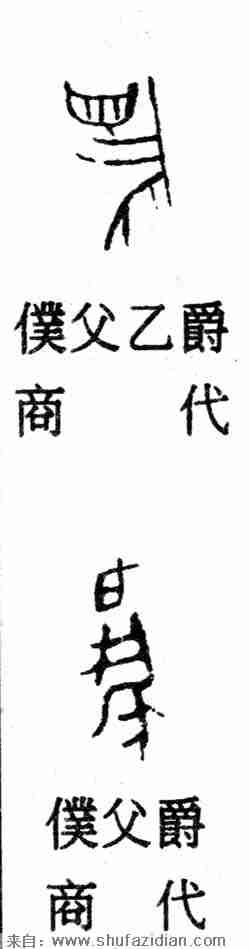 僕父乙爵
商代
僕父爵
商代
来自：www.shufazidian.com